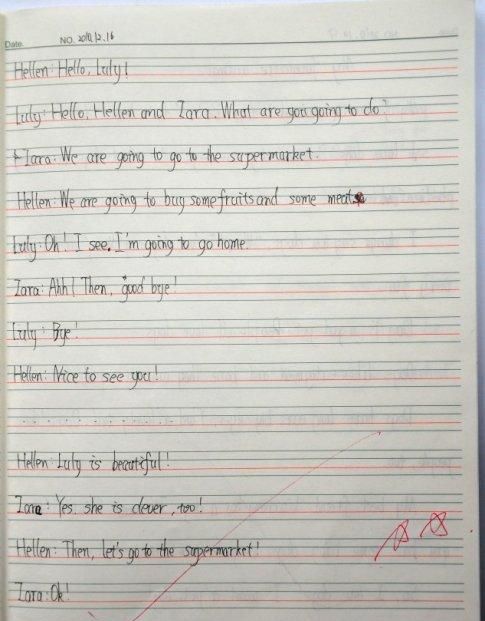 Date. NO. 2016.12.16
Hellen: Hello, Luly!
Luly: Hello, Hellen and Zara. What are you going to do?
Zara: We are going to go to the supermarket.
Hellen: We are going to buy some fruits and some meat
Luly: Oh! I see. I'm going to go home.
Zara: Ahh! Then, good bye!
Luly: Bye!
Hellen: Nice to see you!
..............
Hellen: Luly is beautiful!
Zara: Yes, she is clever, too!
Hellen: Then, let's go to the supermarket!
Zara: Ok!